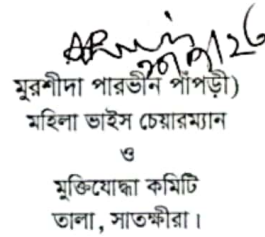 মুরশীদা পারভীন পাঁপড়ী)
মহিলা ভাইস চেয়ারম্যান
ও
মুক্তিযোদ্ধা কমিটি
তালা, সাতক্ষীরা।